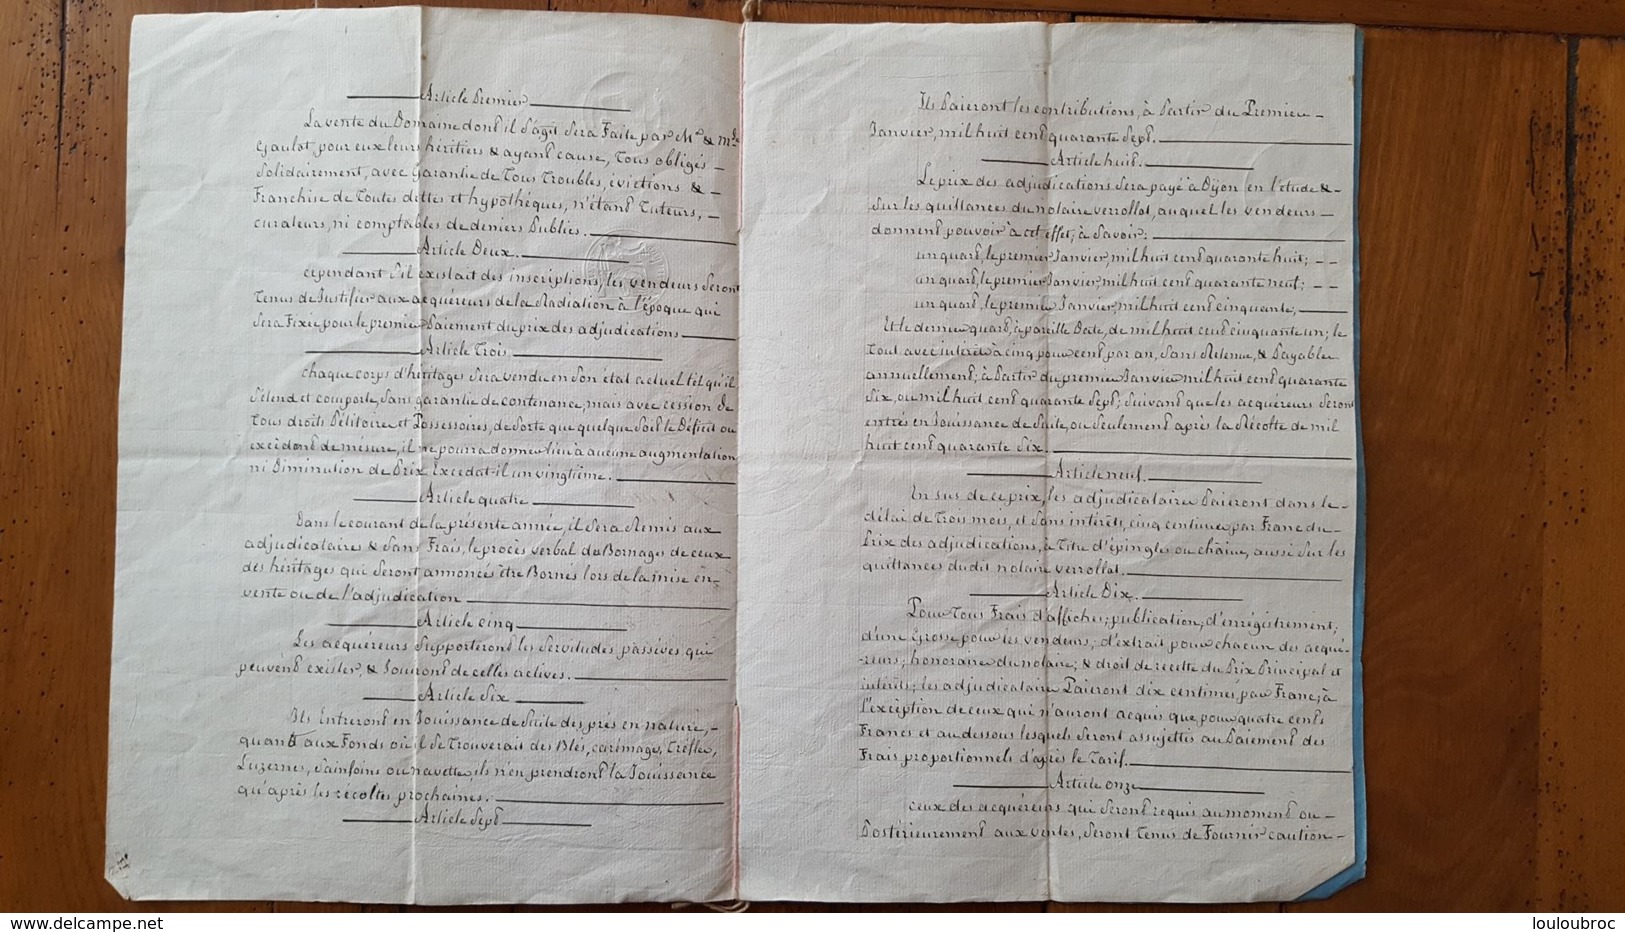 Article Premier
La vente du Domaine dont il s'agit sera Faite par Mr & Mde
Gaulot, pour eux leurs héritiers & ayant cause, Tous obligés
Solidairement, avec Garantie de Tous Troubles, évictions &
Franchise de Toutes dettes et hypothéques, n'étant Tuteurs,
curateurs, ni comptables de deniers Publics.
Article Deux.
cependant s'il existait des inscriptions, les vendeurs seront
Tenus de Justifier aux acquéreurs de la Radiation à l'époque qui
Sera Fixée pour le premier Paiement du prix des adjudications
Article Trois
chaque corps d'héritages Sera vendu en Son état actuel tel qu'il
S'étend et comporte, Sans garantie de contenance, mais avec cession de
Tous droits Pétitoire et Possessoires, de Sorte que quelque Soit le Déficit ou
excédent de mésure, il ne pourra donner lieu à aucune augmentation
ni Diminution de Prix Excedat-il un vingtième.
Article quatre
Dans le courant de la présente année, il Sera Remis aux
adjudicataires & Sans Frais, le procès verbal de Bornages de ceux
des héritages qui Seront annoncés être Bornés lors de la mise en
vente ou de l'adjudication
Article cinq
Les acquéreurs Supporteront les Servitudes passives qui
peuvent exister, & Jouiront de celles actives.
Article Six
Ils Entreront en Jouissance de Suite des prés en nature,
quant aux Fonds où il Se Trouverait des Blés, carêmages, Trèfles,
Luzernes, Sainfoins ou navette, ils n'en prendront la Jouissance
qu'après les récoltes prochaines.
Article Sept
Ils Paieront les contributions, à Partir du Premier
Janvier, mil huit cent quarante Sept.
Article huit.
Le prix des adjudications Sera payé à Dijon en l'étude &
Sur les quittances du notaire verrollot, auquel les vendeurs
donnent pouvoir à cet effet, à Savoir:
un quart, le premier Janvier, mil huit cent quarante huit;
un quart, le premier Janvier, mil huit cent quarante neuf;
un quart, le premier Janvier, mil huit cent cinquante,
Et le dernier quart, à pareille Date, de mil huit cent cinquante un; le
Tout avec intérêt à cinq pour cent par an, Sans Retenue, & Payable
annuellement; à Partir du premier Janvier mil huit cent quarante
Six, ou mil huit cent quarante Sept; Suivant que les acquéreurs Seront
entrés en Jouissance de Suite, ou Seulement après la Récolte de mil
huit cent quarante Six.
Article neuf.
En sus de ce prix, les adjudicataire Paieront dans le
délai de Trois mois, et Sans intérêts, cinq centimes par Franc du
Prix des adjudications, à Titre d'épingles ou chaîne, aussi Sur les
quittances dudit notaire verrollot.
Article Dix.
Pour Tous Frais d'affiches; publication, d'enrégistrement;
d'une Grosse pour les vendeurs; d'extrait pour chacun des acqué-
reurs; honoraire du notaire; & droit de recette du Prix Principal et
intérêts; les adjudicataire Paieront dix centimes, par Franc; à
l'exception de ceux qui n'auront acquis que pour quatre cents
Francs et au dessous lesquels Seront assujettis au Paiement des
Frais proportionnels d'après le Tarif.
Article onze
ceux des acquéreurs qui Seront requis au moment ou
Postérieurement aux ventes, Seront Tenus de Fournir caution
delcampe.net
louloubroc